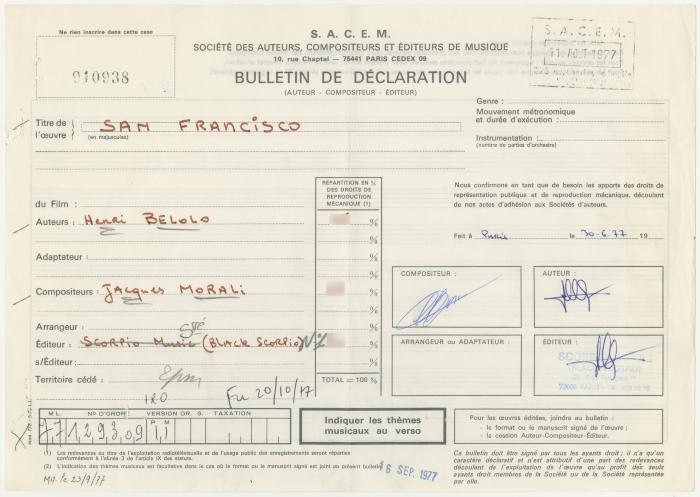 Ne rien inscrire dans cette case
910938
S. A. C. E. M.
SOCIÉTÉ DES AUTEURS, COMPOSITEURS ET ÉDITEURS DE MUSIQUE
10, rue Chaptal — 75441 PARIS CEDEX 09
BULLETIN DE DÉCLARATION
(AUTEUR - COMPOSITEUR - ÉDITEUR)
S. A. C. E. M.
11. AOUT 1977
Genre :
Mouvement métronomique
et durée d'exécution :
Instrumentation :
(nombre de parties d'orchestre)
Titre de
l'œuvre
(en majuscules)
SAN FRANCISCO
RÉPARTITION EN %
DES DROITS DE
REPRODUCTION
MÉCANIQUE (1)
du Film :
Auteurs : Henri BELOLO %
Adaptateur : %
Compositeurs : Jacques MORALI %
Arrangeur : %
Sté
Éditeur : Scorpio Music (BLACK SCORPIO) %
s/Éditeur : %
Territoire cédé :
TOTAL = 100 %
Fu 20/10/77
Nous confirmons en tant que de besoin les apports des droits de
représentation publique et de reproduction mécanique, découlant
de nos actes d'adhésion aux Sociétés d'auteurs.
Fait à Paris le 30-6-77 19
COMPOSITEUR :
AUTEUR :
ARRANGEUR ou ADAPTATEUR :
ÉDITEUR :
M L. N° D'ORDRE VERSION DR. G. TAXATION
P M
Indiquer les thèmes
musicaux au verso
Pour les œuvres éditées, joindre au bulletin :
- le format ou le manuscrit signé de l'œuvre ;
- la cession Auteur-Compositeur-Éditeur.
(1) Les redevances au titre de l'exploitation radiotélévisuelle et de l'usage public des enregistrements seront réparties
conformément à l'alinéa 3 de l'article IX des statuts.
(2) L'indication des thèmes musicaux est facultative dans le cas où le format ou le manuscrit signé est joint au présent bulletin
16 SEP. 1977
Ce bulletin doit être signé par tous les ayants droit ; il n'a qu'un
caractère déclaratif et n'est attributif d'une part des redevances
découlant de l'exploitation de l'œuvre qu'au profit des seuls
ayants droit membres de la Société ou de la Société représentée
par elle.